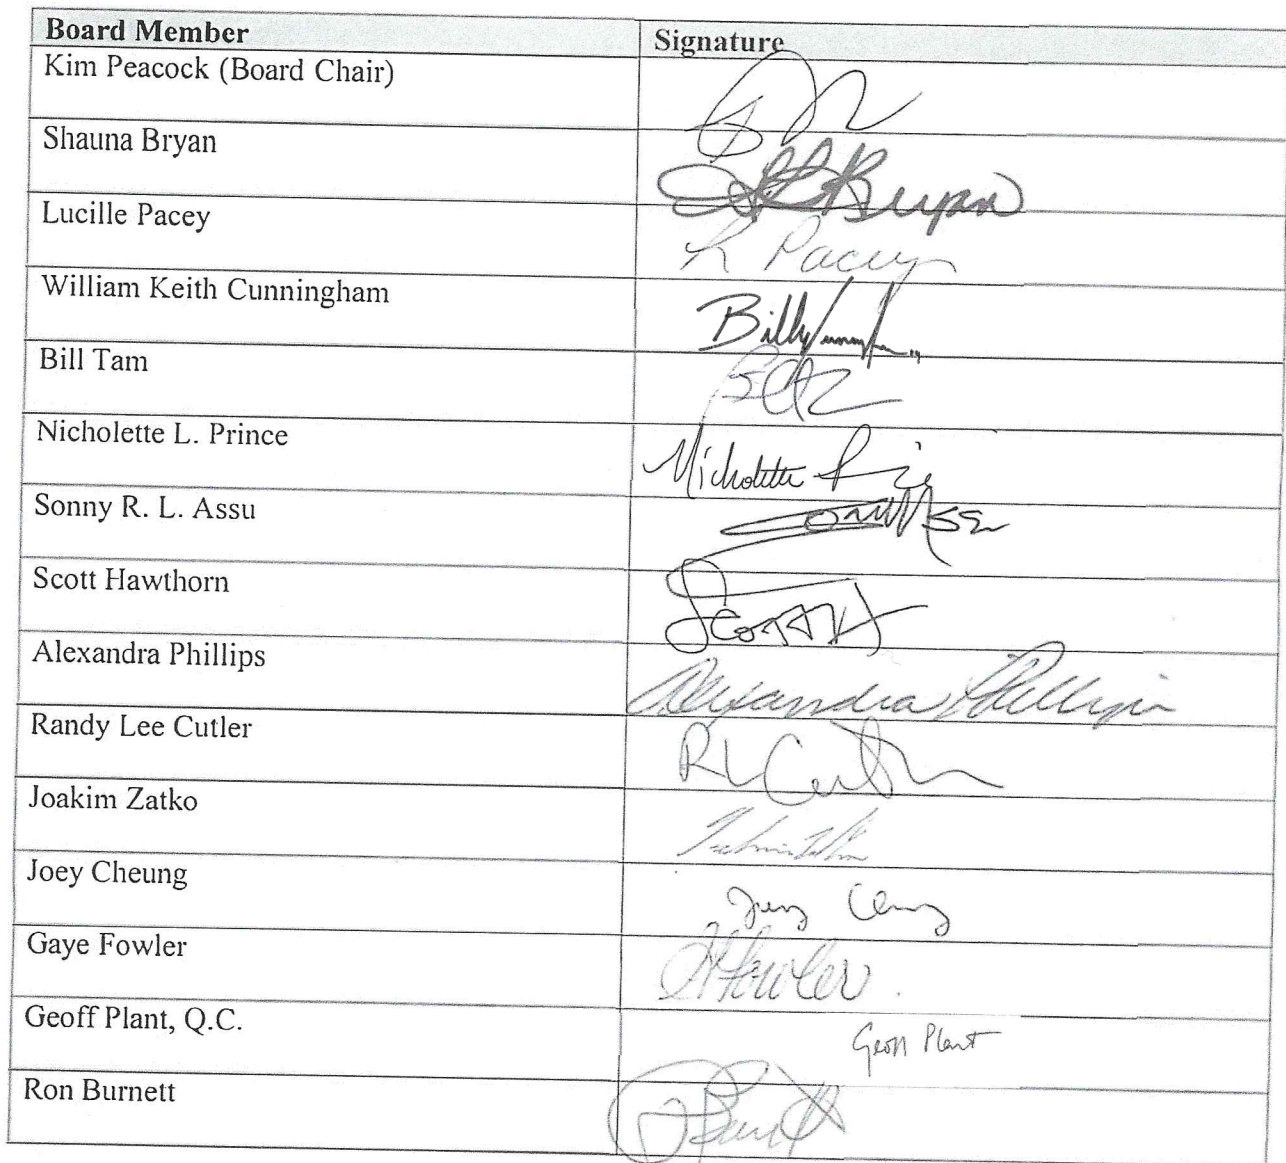 Board Member Signature
Kim Peacock (Board Chair)
Shauna Bryan Bryan
Lucille Pacey L Pacey
William Keith Cunningham Bill
Bill Tam
Nicholette L. Prince Nicholette
Sonny R. L. Assu
Scott Hawthorn Scott H
Alexandra Phillips Alexandra Phillips
Randy Lee Cutler RL Cutler
Joakim Zatko
Joey Cheung Joey Cheung
Gaye Fowler G Fowler
Geoff Plant, Q.C. Geoff Plant
Ron Burnett